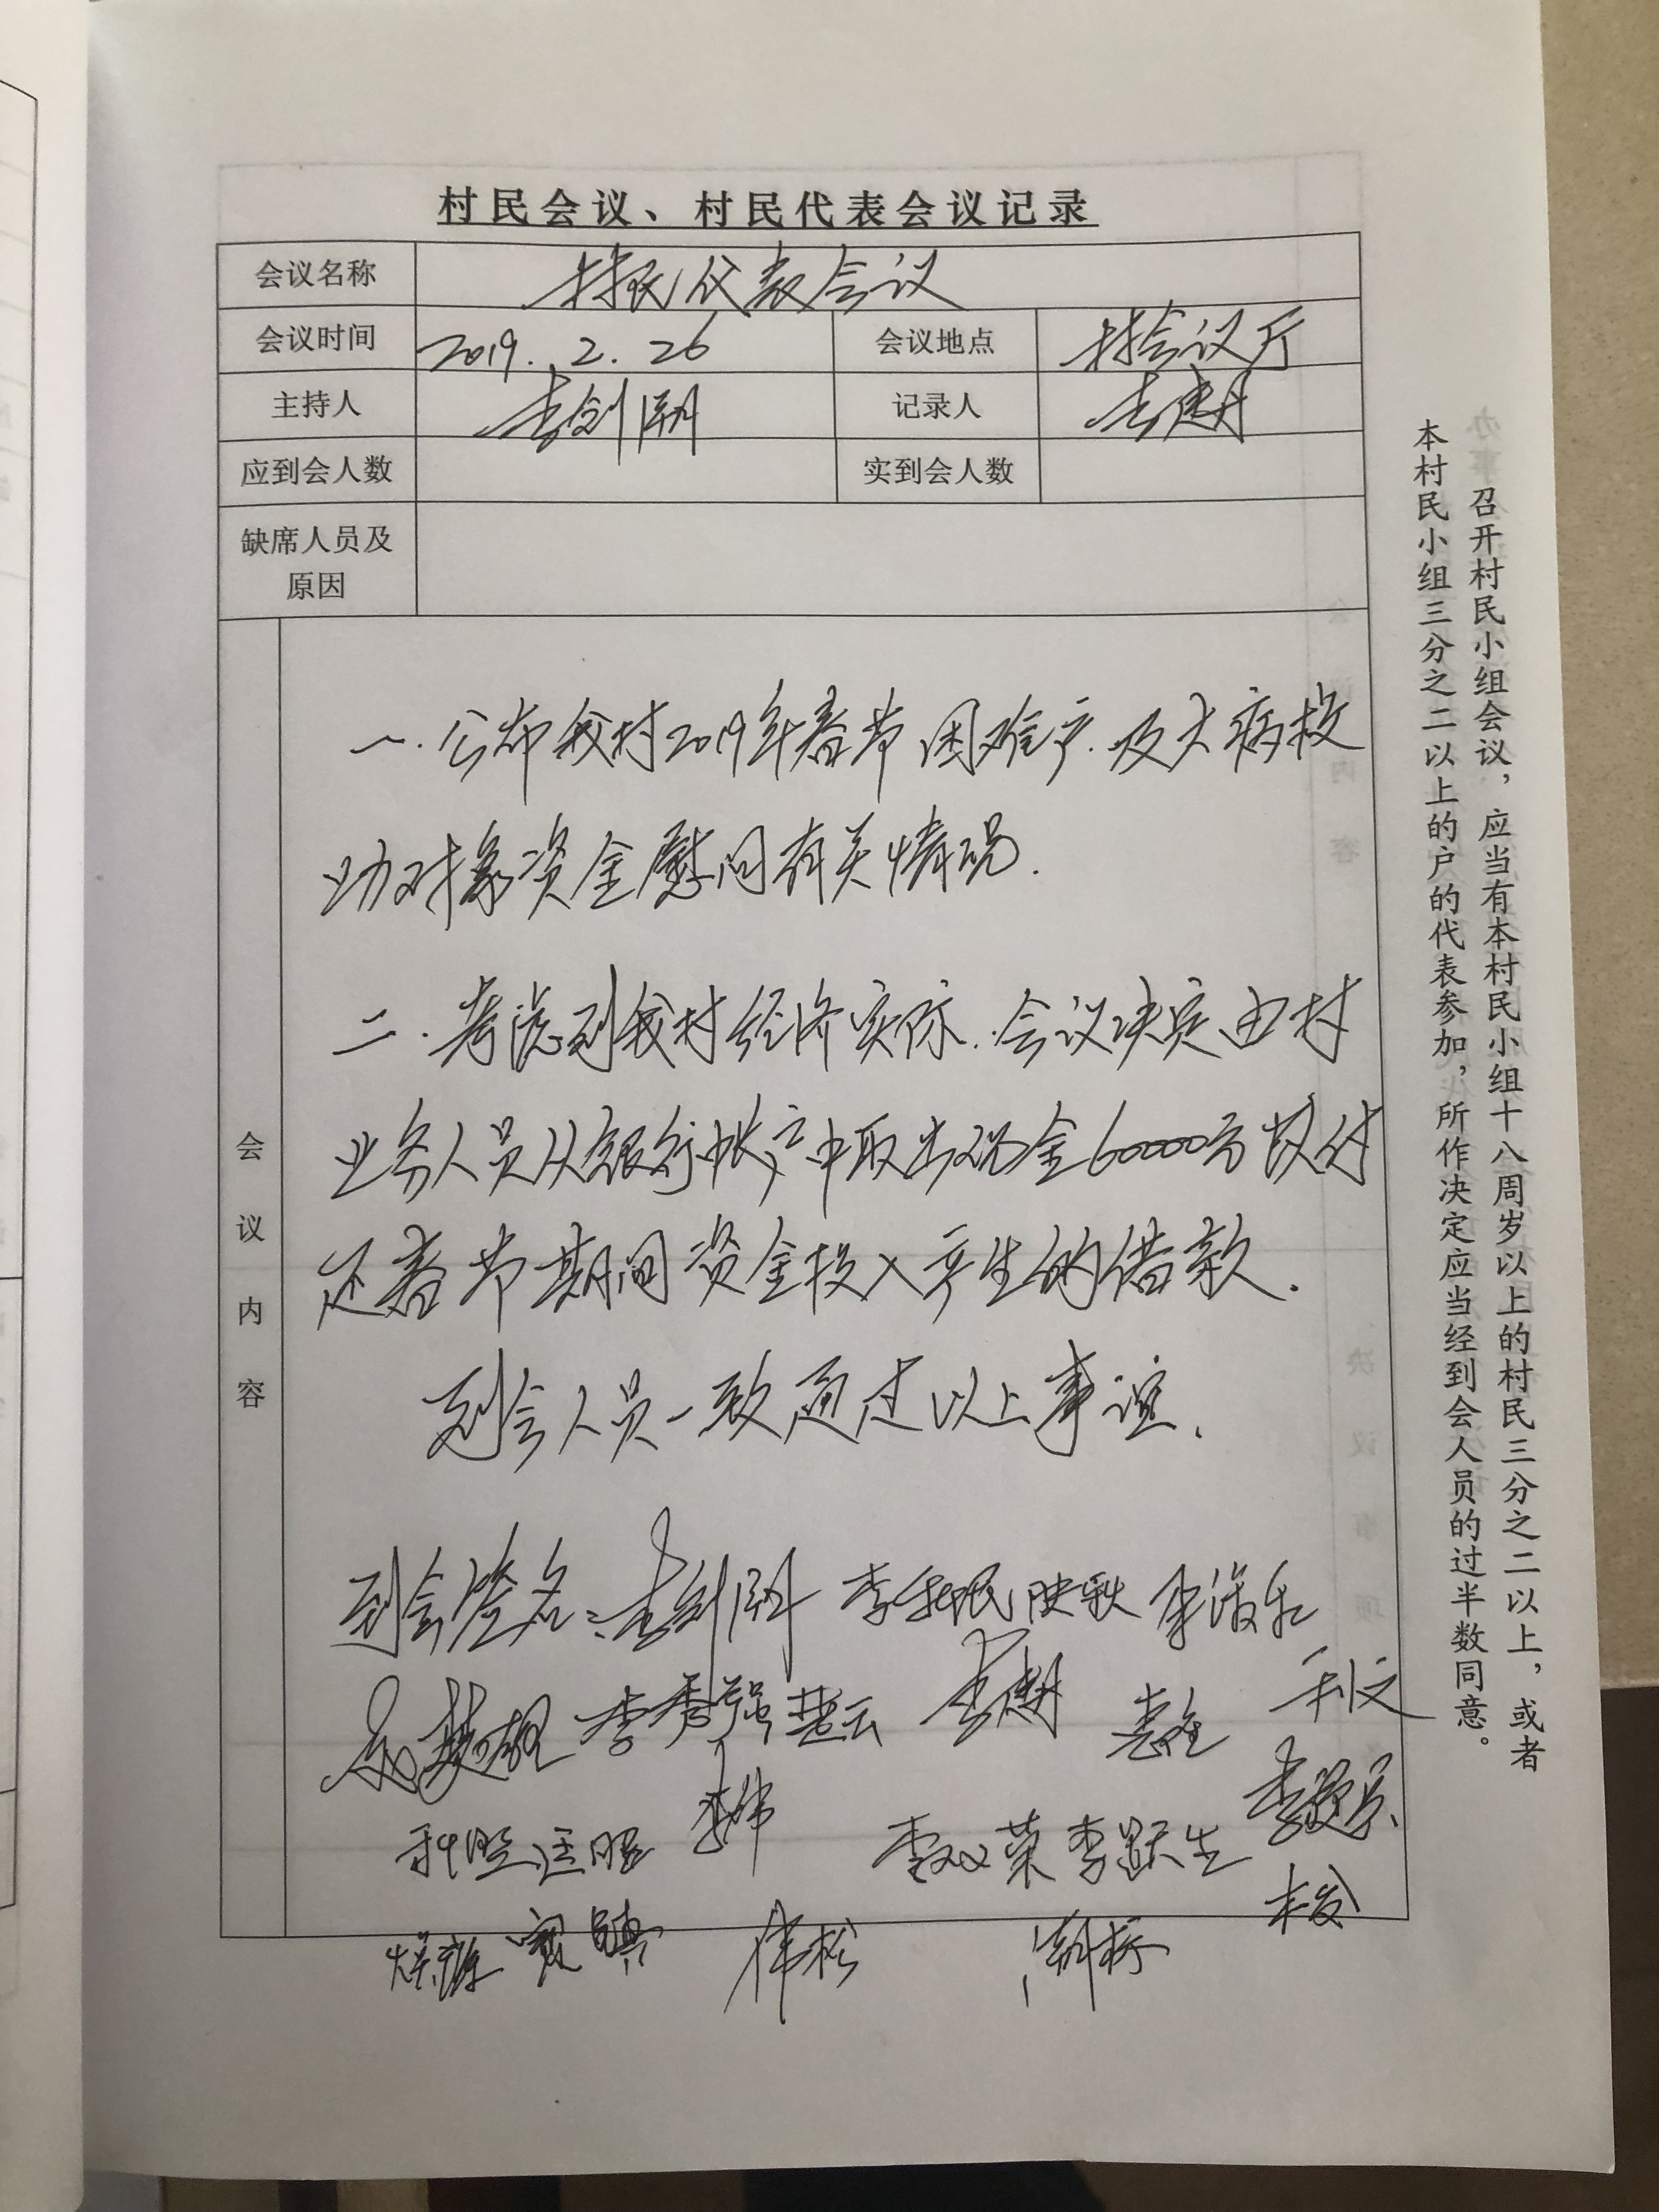 村民会议、村民代表会议记录
会议名称 村民代表会议
会议时间 2019.2.26 会议地点 村会议厅
主持人 李剑潮 记录人
应到会人数 实到会人数
缺席人员及
原因
会议内容
一.公布我村2019年春节困难户.及大病救
助对象资金慰问有关情况.
二.考虑到我村经济实际.会议决定由村
业务人员从银行帐户中取出现金60000方以付
还春节期间资金投入产生的借款.
到会人员一致通过以上事谊.
到会签名:李剑潮 映秋
李秀强 楚云
李伟 李双荣 李跃生
伟松
召开村民小组会议，应当有本村民小组十八周岁以上的村民三分之二以上，或者
本村民小组三分之二以上的户的代表参加，所作决定应当经到会人员的过半数同意。